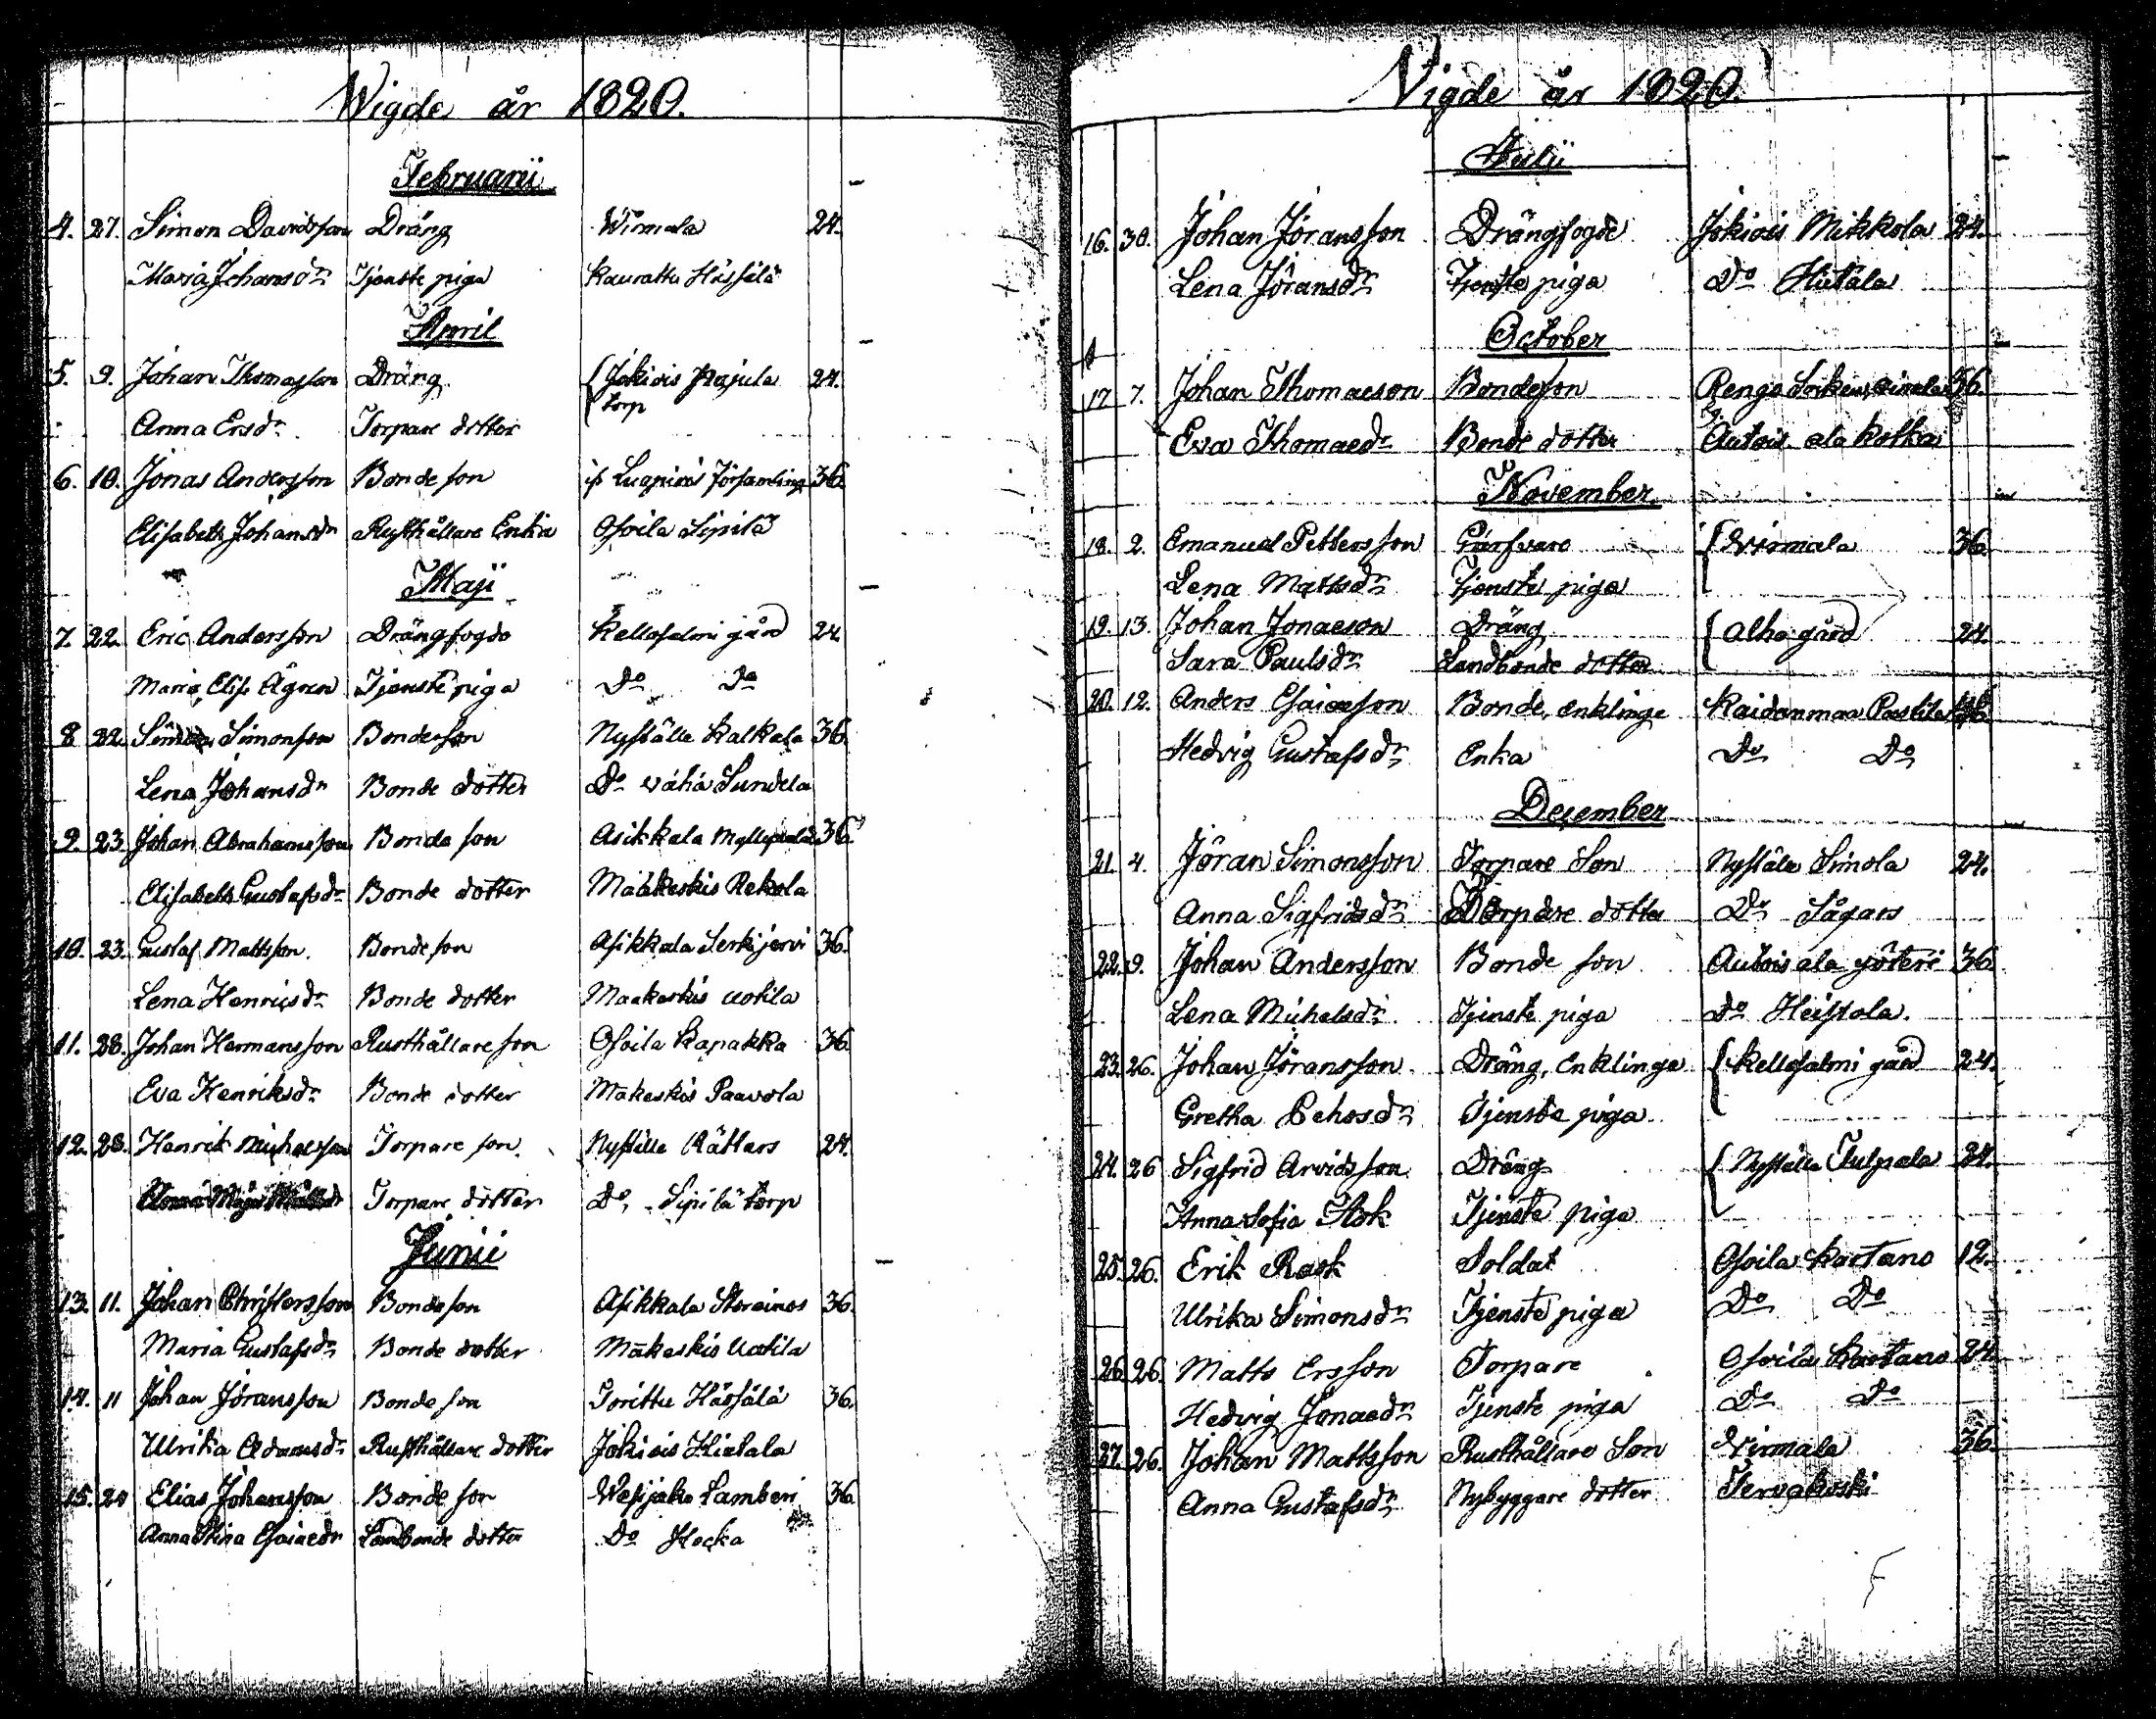 Wigde år 1820.
Februarii
4. 27. Simon Davidsson Dräng Wirmala 24.
Maria Johansdr Tjenste piga Kurattu Hässälä
April
5. 9. Johan Thomasson Dräng Jokiois Pajula torp 24.
Anna Ersdr Torpare dotter
6. 10. Jonas Andersson Bonde son Luopiois Församling 36.
Elisabeth Johansdr Rusthållare Enka Osoila Sipilä
Maji
7. 22. Eric Andersson Drängfogde Kellosalmi gård 24
Maria Elis. Ågren Tjenste piga Do Do
8 22. Simon Simonsson Bondeson Nyställe Kalkala 36.
Lena Johansdr Bonde dotter Do Wähä Sundela
9. 23 Johan Abrahamsson Bonde son Asikkala 36.
Elisabeth Gustafsdr Bonde dotter Mäkeskis Rekola
10. 23. Gustaf Mattsson. Bonde son Asikkala Serkijervi 36.
Lena Henricsdr Bonde dotter Maakeskis Uotila
11. 28. Johan Hermansson Rusthållare son Osoila Kapakka 36.
Eva Henriksdr Bonde dotter Mäkeskis Paavola
12. 28. Henrik Michelsson Torpare son. Nyställe Rättars 24.
Torpare dotter Do Sipilä torp
Junii
13. 11. Johan Christersson Bonde son Asikkala Storeinos 36.
Maria Gustafsdr Bonde dotter Mäkeskis Uotila
14. 11 Johan Jöransson Bonde son Torittu Hässälä 36.
Ulrika Adamsdr Rusthållare dotter Jokiois Hietala
15. 20 Elias Johansson Bonde son Wesijako Lamberi 36
Anna Stina Esaiaedr Landbonde dotter Do Hocka
Vigde år 1820.
Julii
16. 30. Johan Jöransson Drängfogde Jokiois Mikkola 24.
Lena Jöransdr Tjenste piga Do Hietala
October
17 7. Johan Thomaeson Bondeson Rengo Socken 36.
Eva Thomaedr Bonde dotter Autois ala Kotka
November
18. 2. Emanuel Pettersson Garfvare Wirmala 36
Lena Mattsdr Tjenste piga
19. 13. Johan Jonaeson Dräng Alho gård 24.
Sara Paulsdr Landbonde dotter
20. 12. Anders Esaiaesson Bonde, enklinge Kaidanmaa
Hedvig Gustafsdr Enka Do Do
December
21. 4. Jöran Simonsson Torpare Son Nystäle Simola 24.
Anna Sigfridsdr Torpare dotter Do Sågars
22. 9. Johan Andersson Bonde son Autois ala yöteri 36.
Lena Michelsdr. Tjenste piga Do Heistola.
23. 26. Johan Jöransson Dräng, Enklinge Kellosalmi gård 24.
Gretha Tjenste piga
24. 26 Sigfrid Arvidsson Dräng Nyställe Tulpala 24.
Anna Sofia Tjenste piga
25. 26. Erik Rask Soldat Osoila Kartano 12.
Ulrika Simonsdr Tjenste piga Do Do
26 26 Matts Ersson Torpare Osoila Kartano 24
Hedvig Jonaedr Tjenste piga Do Do
27. 26. Johan Mattsson Rusthållare Son Wirmala 36.
Anna Gustafsdr Nybyggare dotter Tervakoski